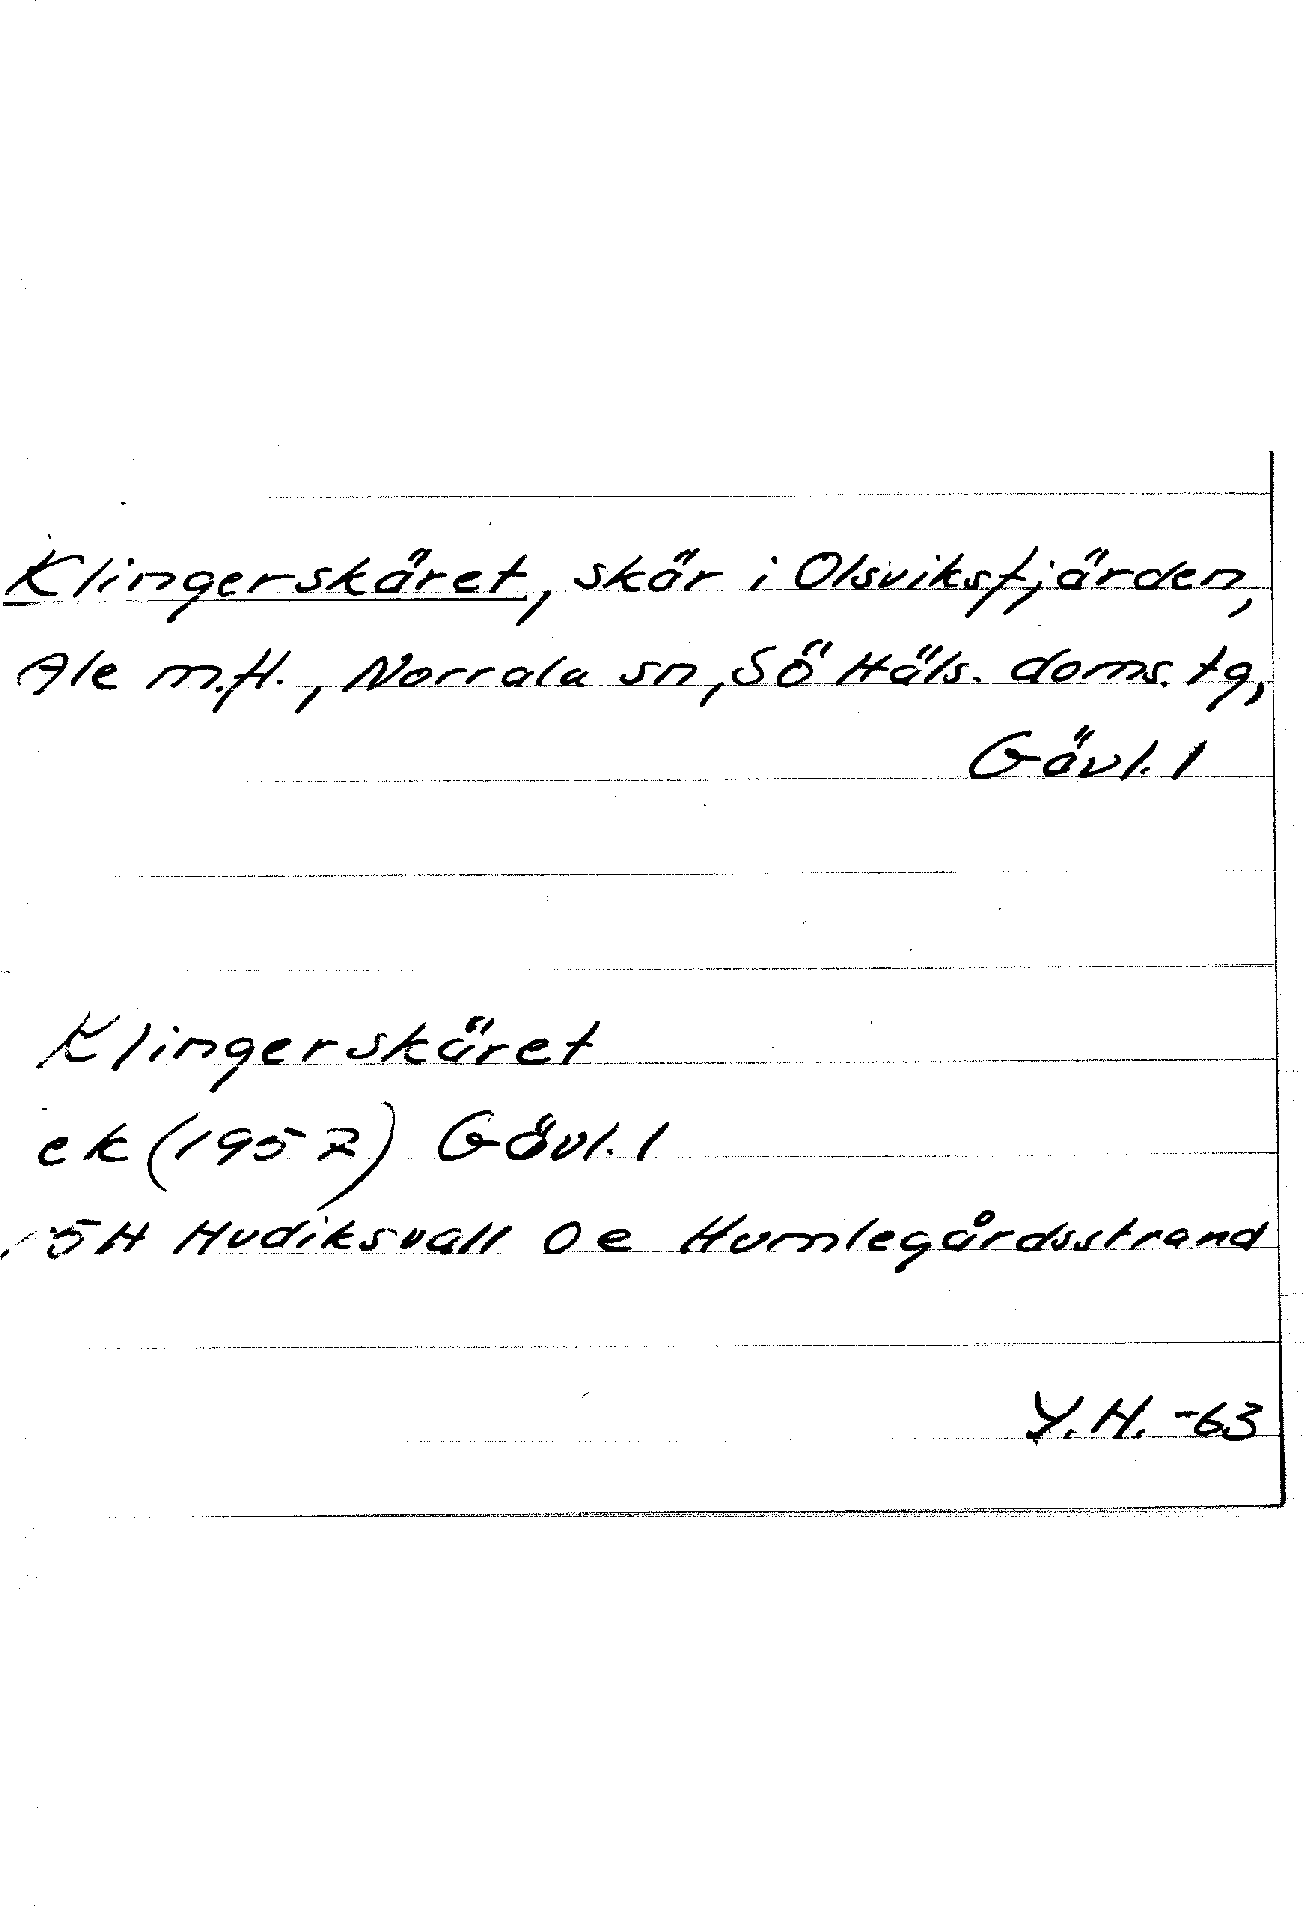 Klingerskäret, skär i Olsviksfjärden,
Ale m.fl., Norrala sn, SÖ Häls. doms. tg,
Gävl. l
Klingerskäret
ek (1957) Gävl. l
15H Hudiksvall 0e Humlegårdsstrand
Y.H. -63